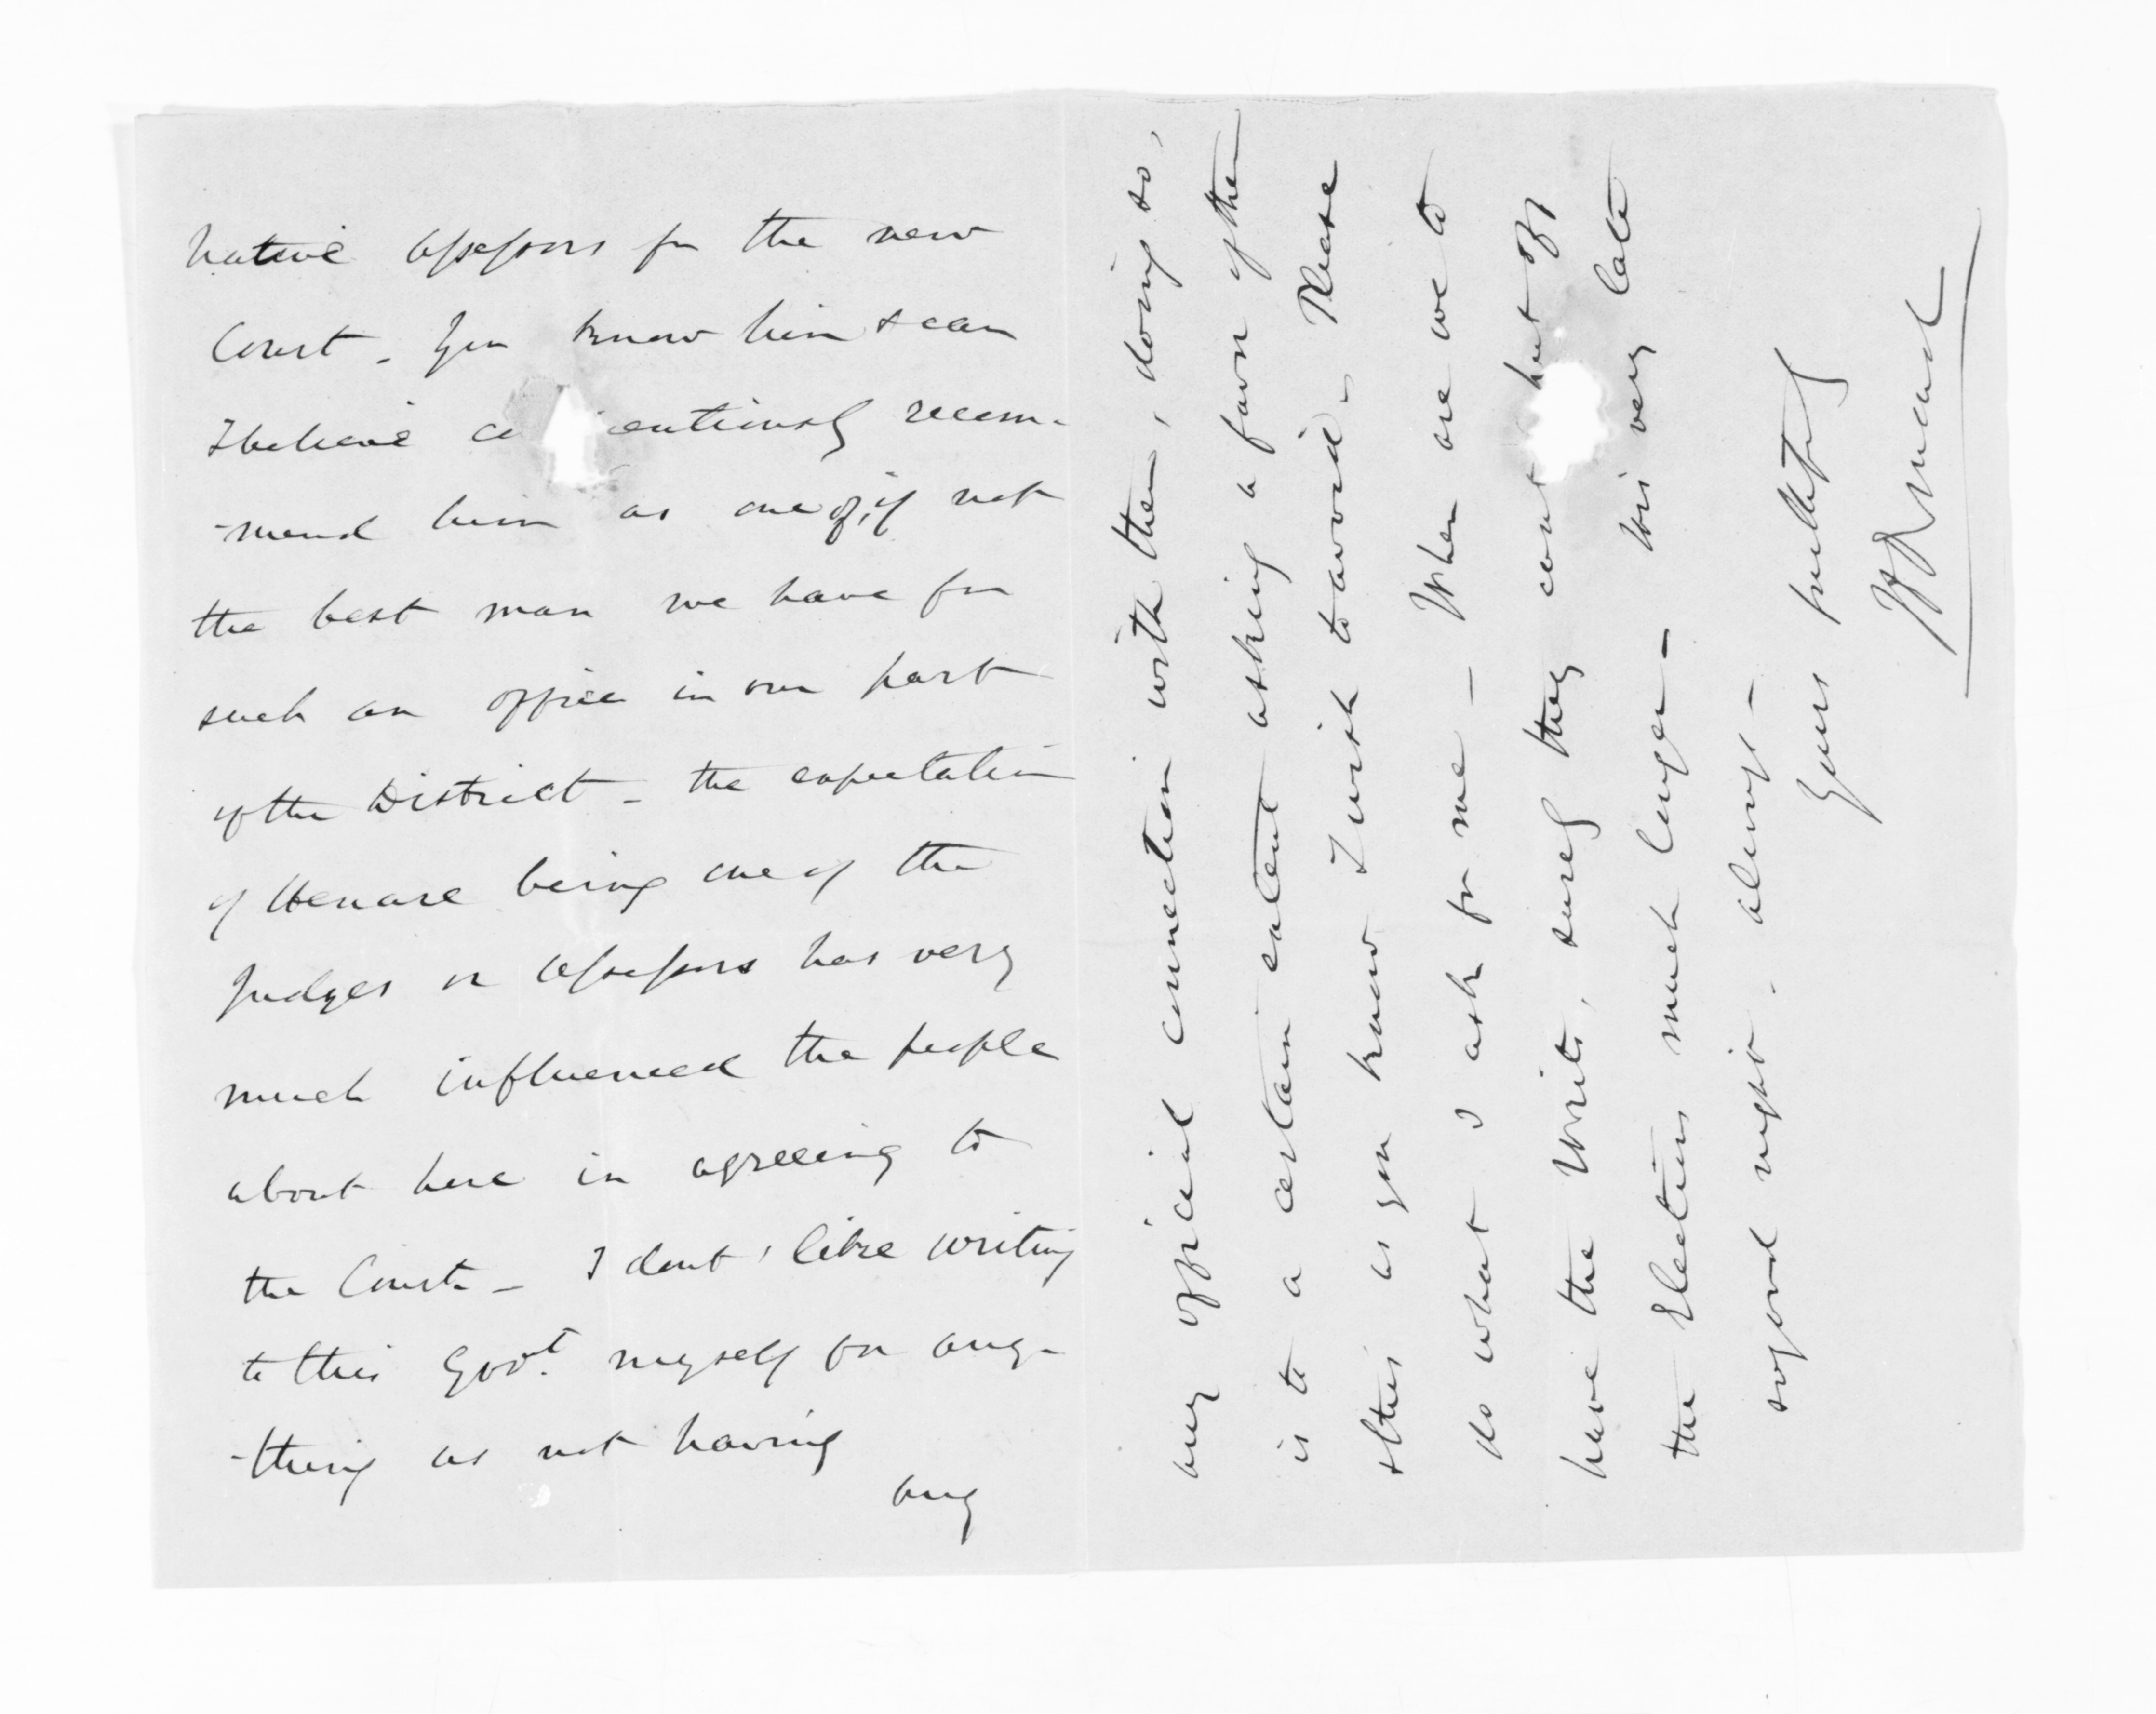 native assessors for the new
Court - You know him & can
I believe co entiously recom-
-mend him as one of, if not
the best man we have for
such an office in our part
of the District - the expectation
of Henare being one of the
Judges or assessors has very
much influenced the people
about here in agreeing to
the Court - I dont like writing
to this Govt. myself for any-
-thing as not having
any
any official connection with them, doing so,
is to a certain extent asking a favor of them
& this as you know I wish to avoid - Please
do what I ask for me - When are we to
have the Writs, surely they cont put off
the Elections much longer - Tis very late
so good night - always -
Yours faithfully